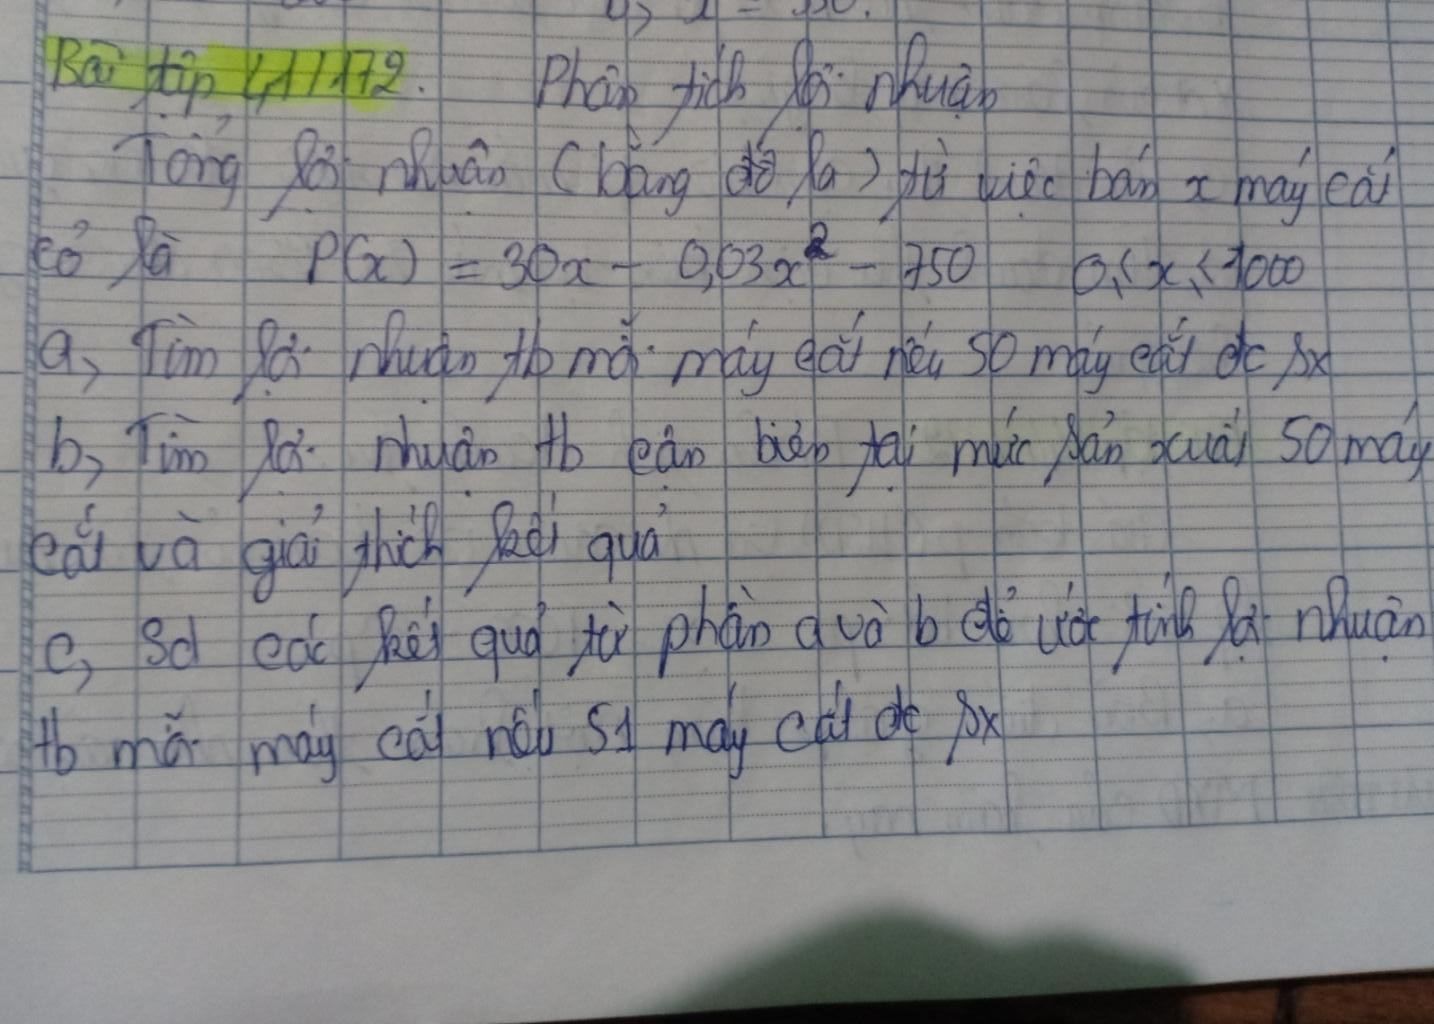 b, x = 350.
Bài tập 41/172. Phân tích lợi nhuận
Tổng lợi nhuận (bằng đô la) từ việc bán x máy cắt
cỏ là P(x) = 30x - 0,03x² - 750 0 ≤ x ≤ 1000
a, Tìm lợi nhuận tb mỗi máy cắt nếu 50 máy cắt đc sx
b, Tìm lợi nhuận tb cận biên tại mức sản xuất 50 máy
cắt và giải thích kết quả
c, Sd các kết quả từ phần a và b để ước tính lợi nhuận
tb mỗi máy cắt nếu 51 máy cắt đc sx